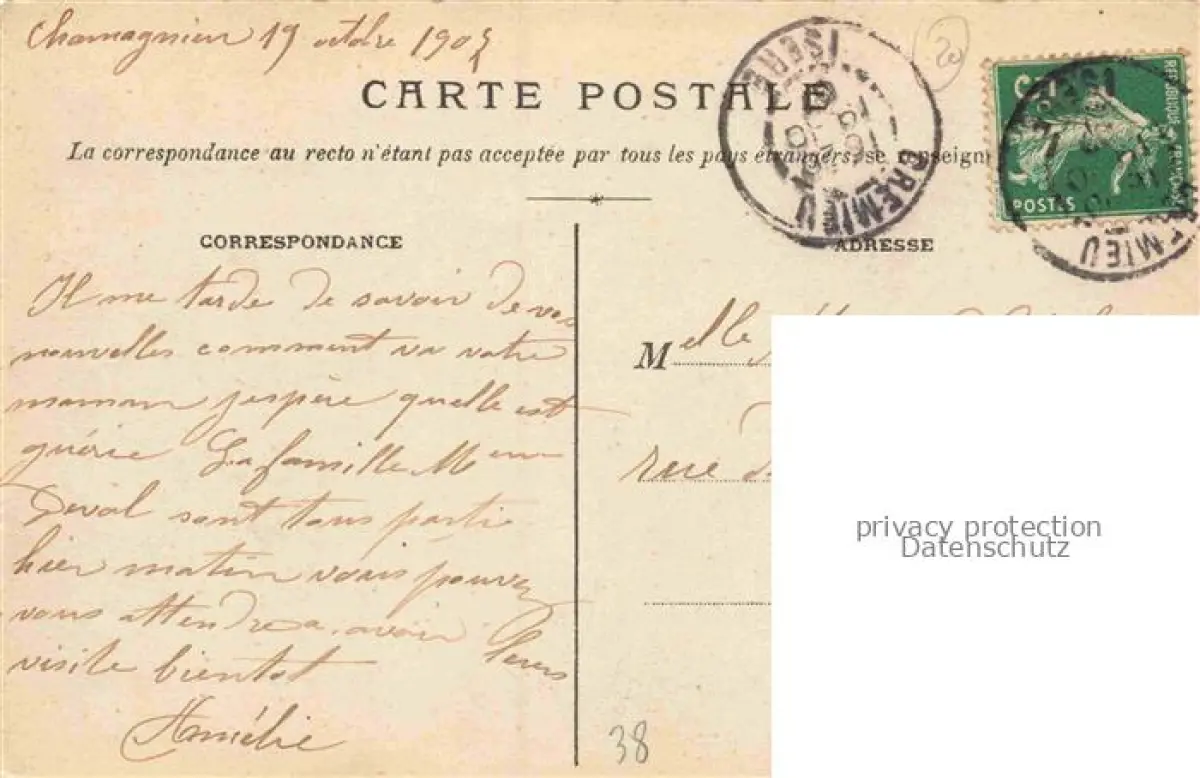 Chamagnieu 19 octobre 190
20
CARTE POSTALE
La correspondance au recto n'étant pas acceptée par tous les pays étrangers, se renseign
CREMIEU
ISERE
REPUBLIQUE FRANÇAISE
POSTES
CORRESPONDANCE
ADRESSE
Il me tarde de savoir de vos
nouvelles comment va votre
maman jespère quelle est
guérie La famille M
Deval sont tous parti
hier matin vous pouvez
vous attendre a avoir leurs
visite bientot
Amélie
Melle
rue
38
privacy protection
Datenschutz